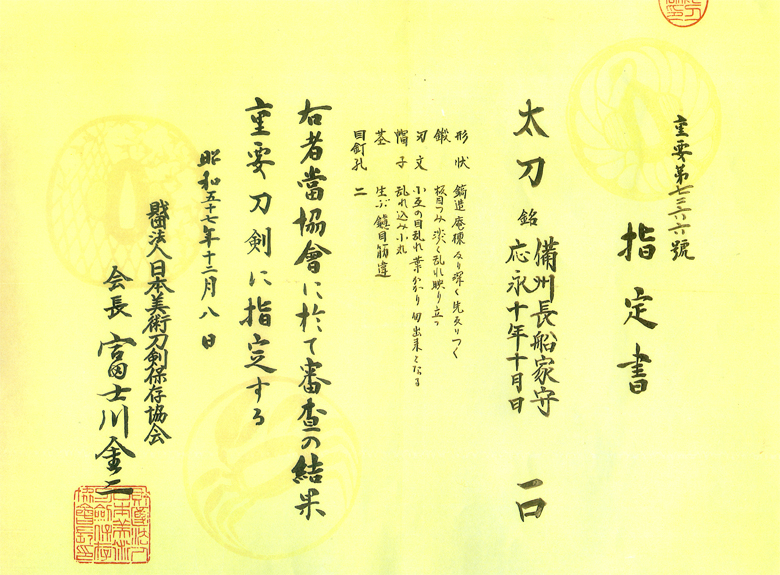 重要第七三六六號
指定書
太刀 銘 備州長船家守 一口
応永十年十月日
形状 鎬造庵棟反り深く先反りつく
鍛 板目つみ淡く乱れ映り立つ
刃文 小互の目乱れ葉かかり匂出来となる
帽子 乱れ込み小丸
茎 生ぶ鑢目筋違
目釘孔 二
右者當協會に於て審査の結果
重要刀剣に指定する
昭和五十七年十二月八日
財団法人日本美術刀剣保存協会
会長 富士川金二